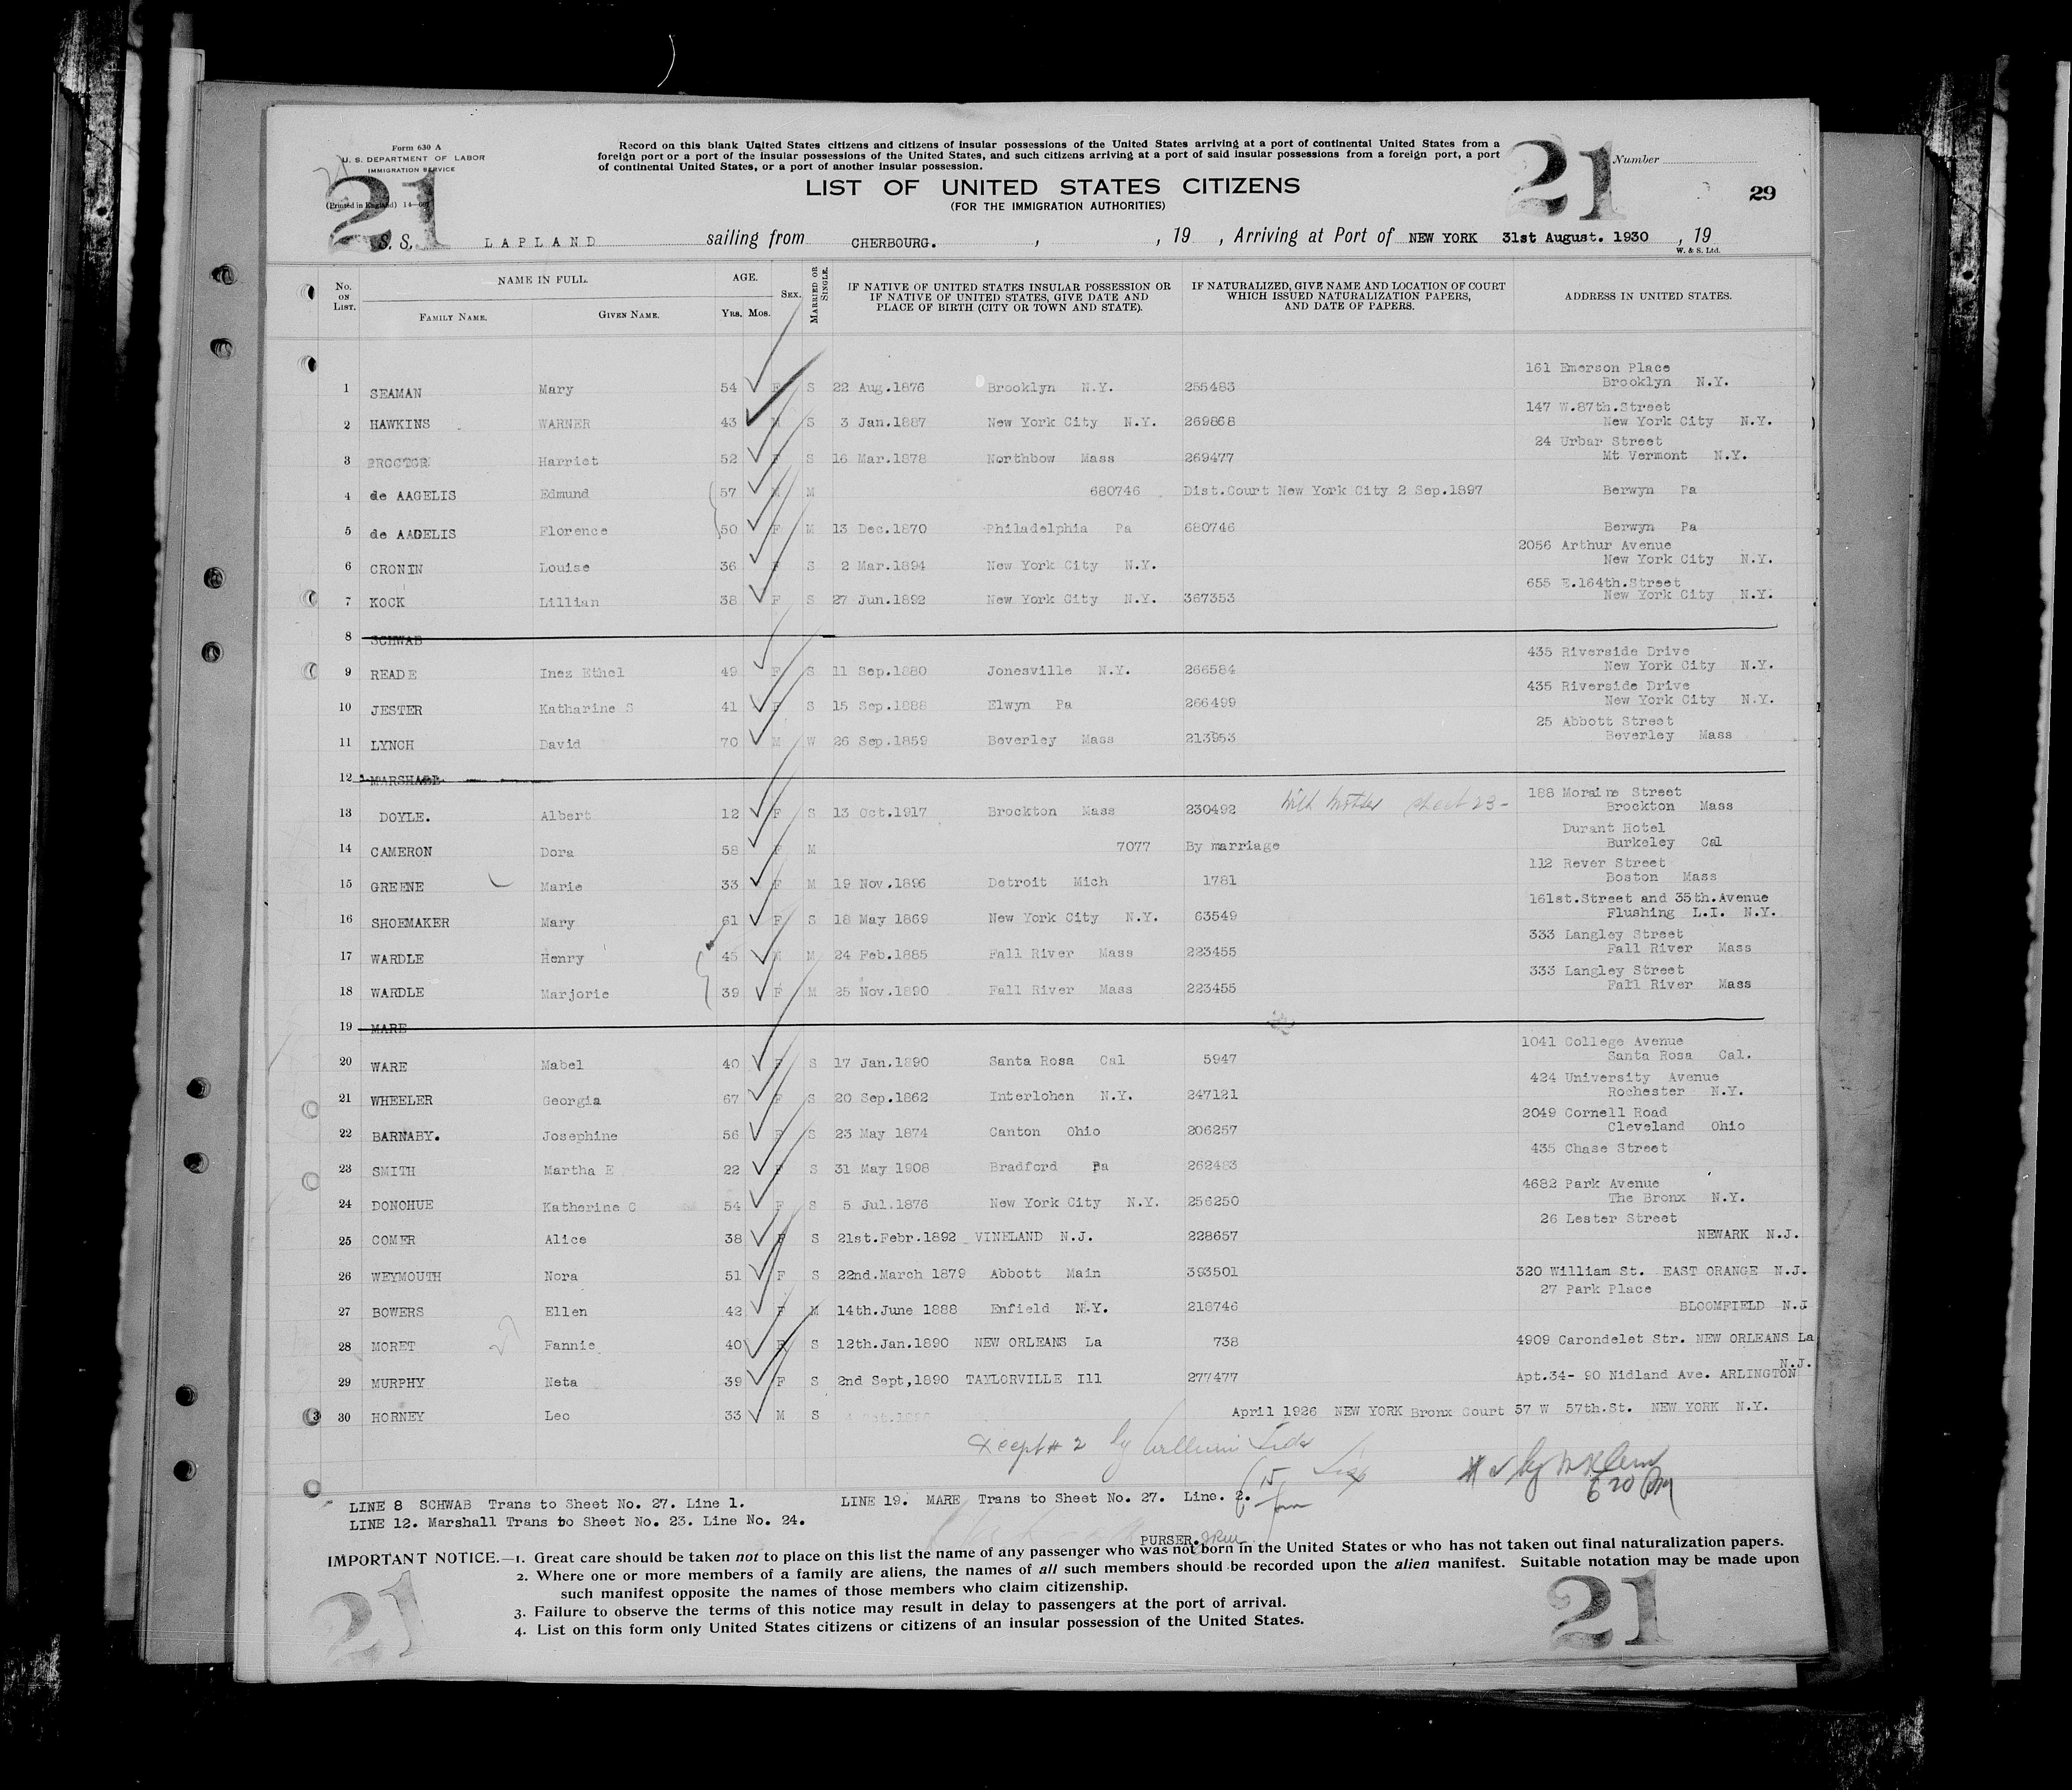 Form 630 A
U. S. DEPARTMENT OF LABOR
IMMIGRATION SERVICE
(Printed in England)
21
Record on this blank United States citizens and citizens of insular possessions of the United States arriving at a port of continental United States from a
foreign port or a port of the insular possessions of the United States, and such citizens arriving at a port of said insular possessions from a foreign port, a port
of continental United States, or a port of another insular possession.
21
Number
29
LIST OF UNITED STATES CITIZENS
(FOR THE IMMIGRATION AUTHORITIES)
S. S. LAPLAND sailing from CHERBOURG. , , 19 , Arriving at Port of NEW YORK 31st August. 1930 , 19
W. & S. Ltd.
No. ON LIST. NAME IN FULL. FAMILY NAME. GIVEN NAME. AGE. YRS. MOS. SEX. MARRIED OR SINGLE. IF NATIVE OF UNITED STATES INSULAR POSSESSION OR IF NATIVE OF UNITED STATES, GIVE DATE AND PLACE OF BIRTH (CITY OR TOWN AND STATE). IF NATURALIZED, GIVE NAME AND LOCATION OF COURT WHICH ISSUED NATURALIZATION PAPERS, AND DATE OF PAPERS. ADDRESS IN UNITED STATES.
1 SEAMAN Mary 54 F S 22 Aug.1876 Brooklyn N.Y. 255483 161 Emerson Place Brooklyn N.Y.
2 HAWKINS WARNER 43 M S 3 Jan.1887 New York City N.Y. 269868 147 W.87th.Street New York City N.Y.
3 PROCTOR Harriet 52 F S 16 Mar.1878 Northbow Mass 269477 24 Urbar Street Mt Vermont N.Y.
4 de AAGELIS Edmund 57 M M 680746 Dist.Court New York City 2 Sep.1897 Berwyn Pa
5 de AAGELIS Florence 50 F M 13 Dec.1870 Philadelphia Pa 680746 Berwyn Pa
6 CRONIN Louise 36 F S 2 Mar.1894 New York City N.Y. 2056 Arthur Avenue New York City N.Y.
7 KOCK Lillian 38 F S 27 Jun.1892 New York City N.Y. 367353 655 E.164th.Street New York City N.Y.
8 SCHWAB
9 READE Inez Ethel 49 F S 11 Sep.1880 Jonesville N.Y. 266584 435 Riverside Drive New York City N.Y.
10 JESTER Katharine S 41 F S 15 Sep.1888 Elwyn Pa 266499 435 Riverside Drive New York City N.Y.
11 LYNCH David 70 M W 26 Sep.1859 Beverley Mass 213953 25 Abbott Street Beverley Mass
12 MARSHALL
13 DOYLE. Albert 12 F S 13 Oct.1917 Brockton Mass 230492 With mother sheet 23- 188 Moraine Street Brockton Mass
14 CAMERON Dora 58 F M 7077 By marriage Durant Hotel Burkeley Cal
15 GREENE Marie 33 F M 19 Nov.1896 Detroit Mich 1781 112 Rever Street Boston Mass
16 SHOEMAKER Mary 61 F S 18 May 1869 New York City N.Y. 63549 161st.Street and 35th.Avenue Flushing L.I. N.Y.
17 WARDLE Henry 45 M M 24 Feb.1885 Fall River Mass 223455 333 Langley Street Fall River Mass
18 WARDLE Marjorie 39 F M 25 Nov.1890 Fall River Mass 223455 333 Langley Street Fall River Mass
19 MARE
20 WARE Mabel 40 F S 17 Jan.1890 Santa Rosa Cal 5947 1041 College Avenue Santa Rosa Cal.
21 WHEELER Georgia 67 F S 20 Sep.1862 Interlohen N.Y. 247121 424 University Avenue Rochester N.Y.
22 BARNABY. Josephine 56 F S 23 May 1874 Canton Ohio 206257 2049 Cornell Road Cleveland Ohio
23 SMITH Martha E 22 F S 31 May 1908 Bradford Pa 262483 435 Chase Street
24 DONOHUE Katherine C 54 F S 5 Jul.1876 New York City N.Y. 256250 4682 Park Avenue The Bronx N.Y.
25 COMER Alice 38 F S 21st.Febr.1892 VINELAND N.J. 228657 26 Lester Street NEWARK N.J.
26 WEYMOUTH Nora 51 F S 22nd.March 1879 Abbott Main 393501 320 William St. EAST ORANGE N.J.
27 BOWERS Ellen 42 F M 14th.June 1888 Enfield N.Y. 218746 27 Park Place BLOOMFIELD N.J
28 MORET Fannie 40 F S 12th.Jan.1890 NEW ORLEANS La 738 4909 Carondelet Str. NEW ORLEANS La
29 MURPHY Neta 39 F S 2nd Sept,1890 TAYLORVILLE Ill 277477 Apt.34- 90 Nidland Ave. ARLINGTON N.J.
30 HORNEY Leo 33 M S April 1926 NEW YORK Bronx Court 57 W 57th.St. NEW YORK N.Y.
except # 2 by
6 20 PM
LINE 8 SCHWAB Trans to Sheet No. 27. Line 1. LINE 19. MARE Trans to Sheet No. 27. Line. 2.
LINE 12. Marshall Trans to Sheet No. 23. Line No. 24.
PURSER.
IMPORTANT NOTICE.—1. Great care should be taken not to place on this list the name of any passenger who was not born in the United States or who has not taken out final naturalization papers.
2. Where one or more members of a family are aliens, the names of all such members should be recorded upon the alien manifest. Suitable notation may be made upon
such manifest opposite the names of those members who claim citizenship.
3. Failure to observe the terms of this notice may result in delay to passengers at the port of arrival.
4. List on this form only United States citizens or citizens of an insular possession of the United States.
21
21